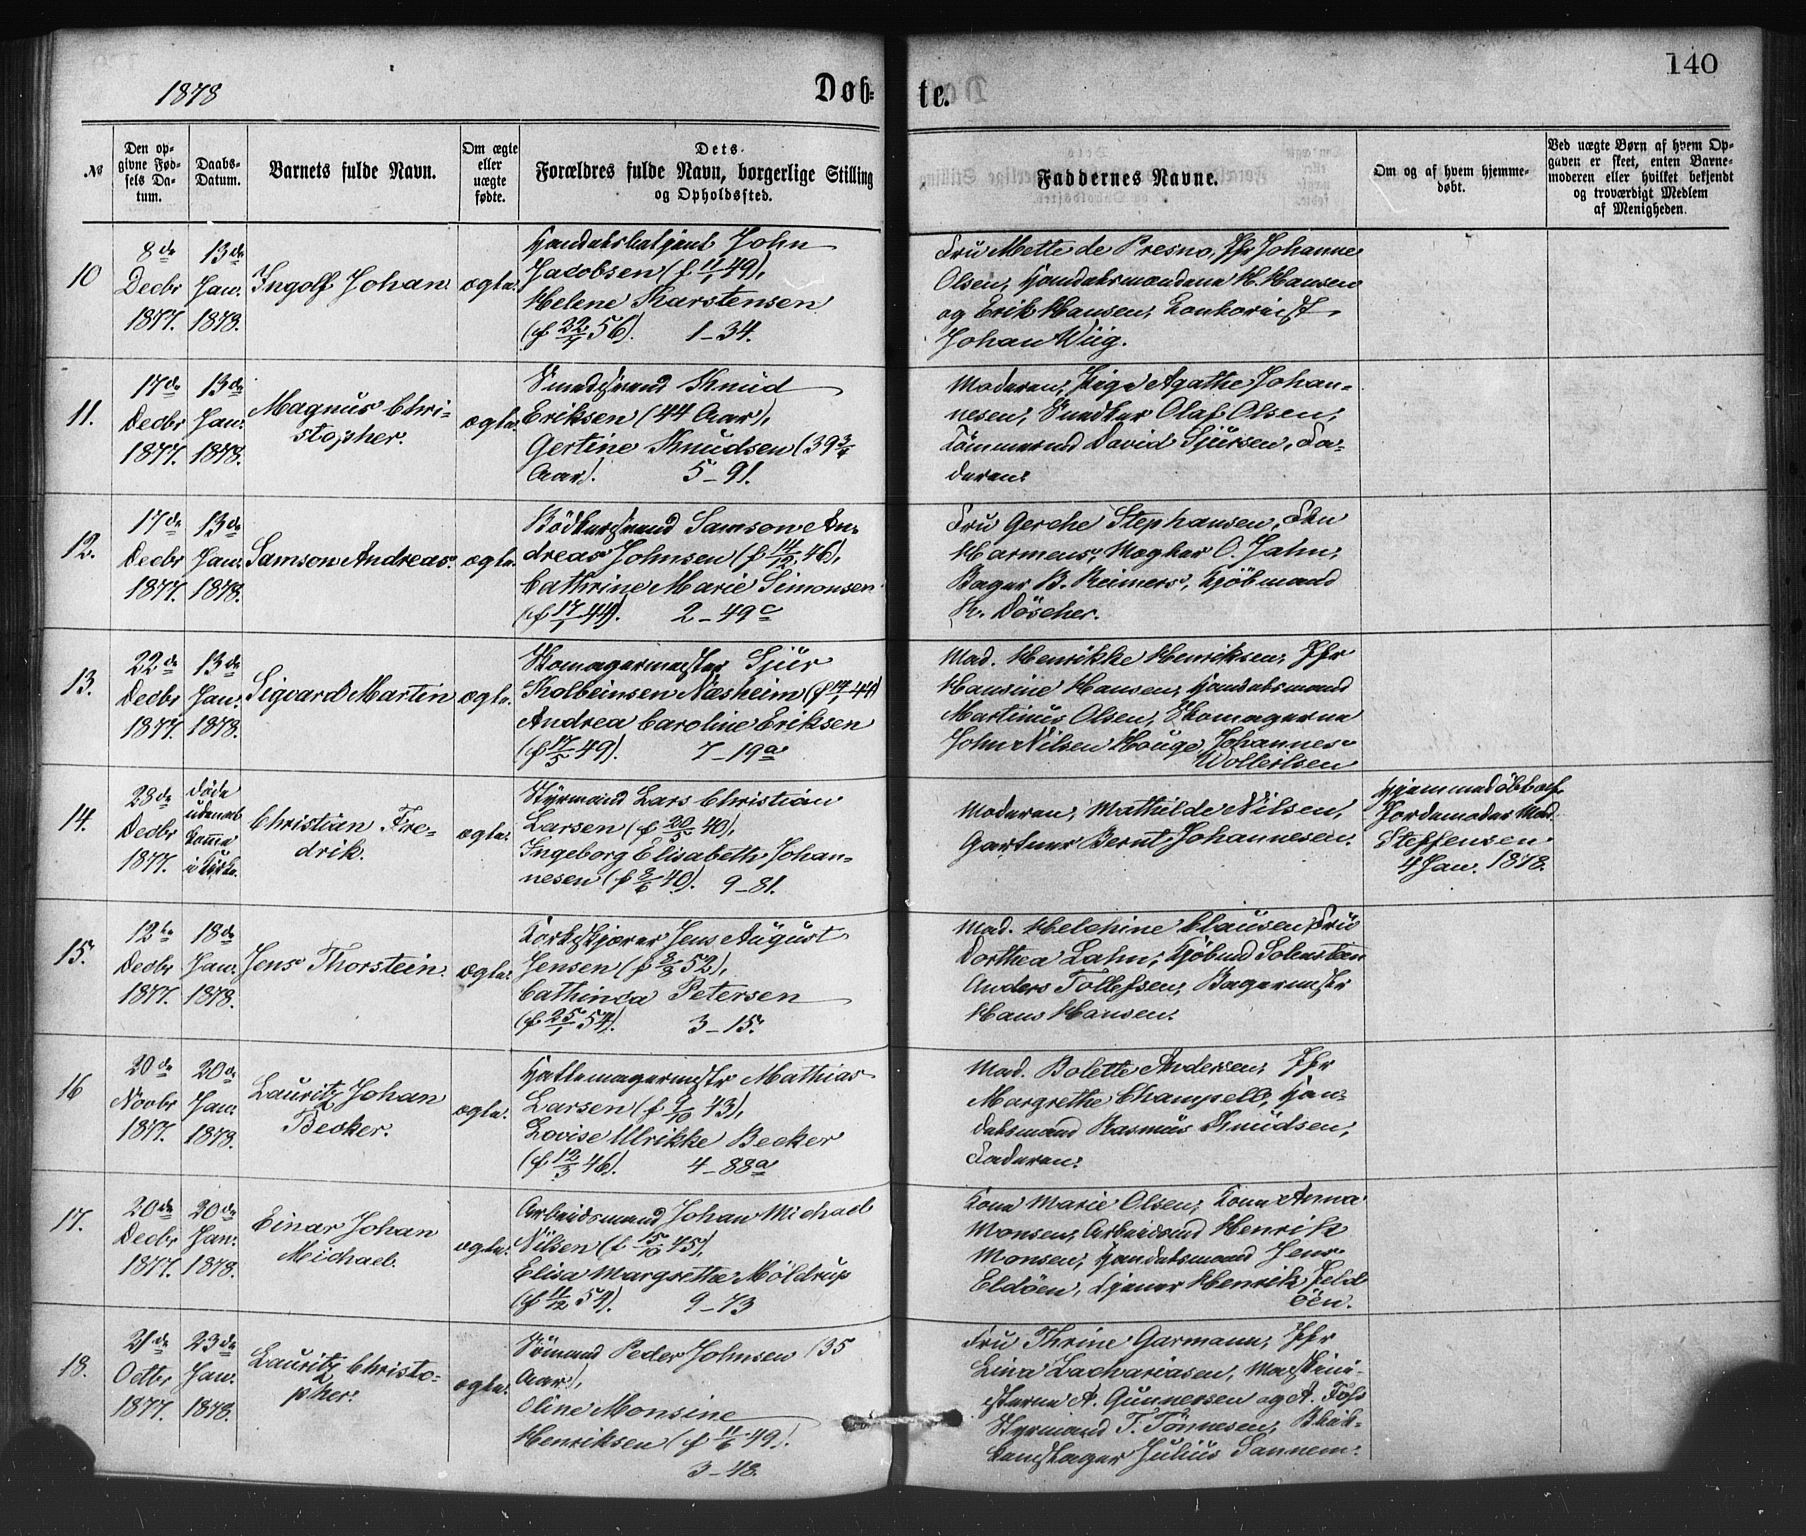 140
1878
Døb-
te.
№
Den op-
givne Fød-
sels Da-
tum.
Daabs-
Datum.
Barnets fulde Navn.
Om ægte
eller
uægte
fødte.
Dets
Forældres fulde Navn, borgerlige Stilling
og Opholdssted.
Faddernes Navne.
Om og af hvem hjemme-
døbt.
Ved uægte Børn af hvem Op-
gaven er skeet, enten Barne-
moderen eller hvilket bekjendt
og troværdigt Medlem
af Menigheden.
10
8de
Decbr
1877.
13de
Jan.
1878.
Ingolf Johan.
ægte.
Handelsbetjent John
Jacobsen (f 11/1 49),
Helene Karstensen
(f 22/7 56). 1-34.
Fru Mette de Presno, Jfr Johanne
Olsen, Handelsmændene H. Hansen
og Erik Hansen, Kontorist
Johan Wiig.
11.
17de
Decbr
1877.
13de
Jan.
1878.
Magnus Chri-
stopher.
ægte.
Smedesvend Knud
Eriksen (44 Aar),
Gertine Knudsen (39 3/4
Aar). 5-91.
Moderen, Pige Agathe Johan-
nesen, Snedker Olaf Olsen,
Tømmermd David Sjursen, Fa-
deren.
12.
17de
Decbr
1877.
13de
Jan.
1878.
Samson Andreas.
ægte.
Bødkersvend Samson An-
dreas Johnsen (f 14/12 46),
Cathrine Marie Simonsen
(f 17/1 44). 2-49c
Fru Gerche Stephansen, Frk
Harmens, Mægler O. Jahn,
Bager B. Reimers, Kjøbmand
H. Döscher.
13.
22de
Decbr
1877.
13de
Jan.
1878.
Sigvard Martin
ægte.
Skomagermester Sjur
Kolbeinsen Næsheim (f 14/1 44)
Andrea Caroline Eriksen
(f 17/5 49). 7-19a
Mad. Henrikke Henriksen, Jfr
Hansine Hansen, Handelsmand
Martinus Olsen, Skomagerne
John Nilsen Houge, Johannes
Wollertsen
14.
28de
Decbr
1877.
døde
uden at
komme
i Kirke.
Christian Fre-
drik.
ægte.
Styrmand Lars Christian
Larsen (f 20/5 40),
Ingeborg Elisabeth Johan-
nesen (f 8/6 40). 9-81.
Moderen, Mathilde Nilsen,
Gartner Bernt Johannesen.
Hjemmedøbt af
Jordemoder Mad.
Steffensen
4 Jan. 1878.
15.
12te
Decbr
1877.
18de
Jan.
1878.
Jens Thorstein.
ægte.
Korkskjærer Jens August
Jensen (f 8/3 52),
Cathinca Petersen
(f 25/1 54). 3-15.
Mad. Melchine Clausen, Fru
Dorthea Lahn, Kjøbmd
Anders Tollefsen, Bagermester
Hans Hansen.
16
20de
Novbr
1877.
20de
Jan.
1878.
Lauritz Johan
Becker.
ægte.
Hattemagermestr Mathias
Larsen (f 9/10 43),
Lovise Ulrikke Becker
(f 12/3 46). 4-88a
Mad. Bolette Andersen, Jfr
Margrethe Champell, Han-
delsmand Rasmus Knudsen,
Faderen.
17.
20de
Decbr
1877.
20de
Jan.
1878.
Einar Johan
Michael.
ægte.
Arbeidsmand Johan Michael
Nilsen (f 15/10 45),
Elisa Margrethe Möldrup
(f 11/12 54). 9-73
Kone Marie Olsen, Kone Anna
Monsen, Arbeidsmd Henrik
Monsen, Handelsmand Jens
Eldöen, Tjener Henrik Feld
öen.
18.
21de
Octbr
1877.
23de
Jan.
1878.
Lauritz Christo-
pher.
ægte.
Sømand Peder Johnsen (35
Aar),
Oline Monsine
Henriksen (f 11/6 49).
3-48.
Fru Thrine Garmann, Jfr
Lina Zachariasen, Maskini-
sterne A. Gunnersen og A. Foss
Styrmand T. Tönnesen, Blik-
kenslager Julius Sannem.